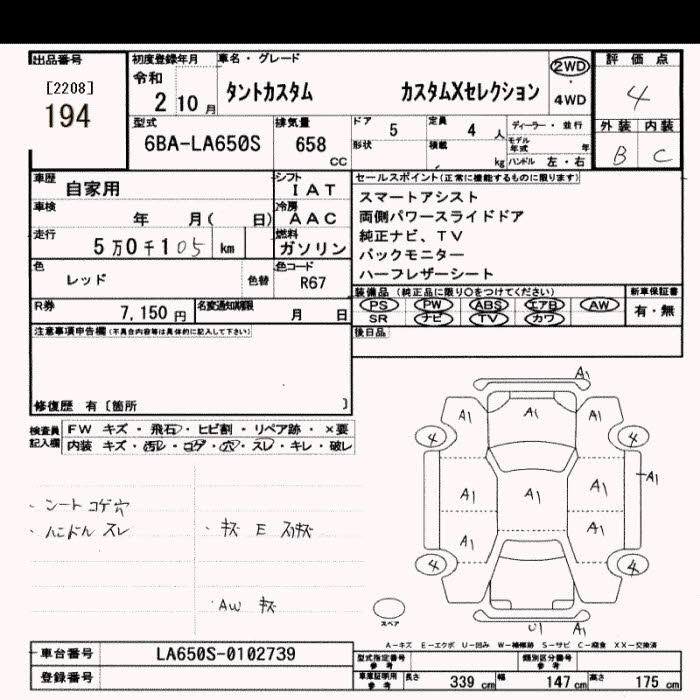 出品番号
[2208]
194
初度登録年月
令和
2 10月
車名・グレード
タントカスタム カスタムXセレクション
2WD
・
4WD
評価点
4
外装 内装
B C
型式
6BA-LA650S
排気量
658
CC
ドア 5
定員 4 人
ディーラー・並行
形状
積載 kg
モデル年式 年
ハンドル 左・右
車歴
自家用
シフト
I A T
車検
年 月( 日)
冷房
A A C
走行
5万0千105 km
燃料
ガソリン
色
レッド
色替
色コード
R67
R券
7,150円
名変通知期限
月 日
セールスポイント(正常に機能するものに限ります)
スマートアシスト
両側パワースライドドア
純正ナビ、TV
バックモニター
ハーフレザーシート
装備品(純正品に限り○をつけてください)
新車保証書
PS PW ABS エアB AW
有・無
SR ナビ TV カワ
後日品
注意事項申告欄(不具合内容等は具体的に記入して下さい)
修復歴 有〔箇所 〕
検査員
記入欄
FW キズ・飛石・ヒビ割・リペア跡・×要
内装 キズ・汚レ・コゲ・穴・スレ・キレ・破レ
・シートコゲ穴
・ハンドルスレ
・キズ E スリキズ
・AW キズ
A1
A1 A1 A1
4 4
A1
A1 A1 A1
A1 A1
4 4
U1 A1
スペア
A-キズ E-エクボ U-凹み W-補修跡 S-サビ C-腐食 XX-交換済
車台番号
LA650S-0102739
登録番号
型式指定番号
参考
類別区分番号
参考
車庫証明用
参考
長さ 339 cm 幅 147 cm 高さ 175 cm